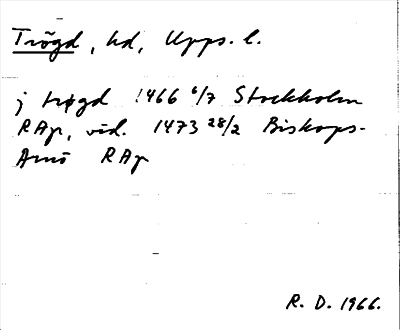 Trögd, hd, Upps. l.
j trøgd 1466 6/7 Stockholm
RAp, vid. 1473 28/2 Biskops-
Arnö RAp
R. D. 1966.